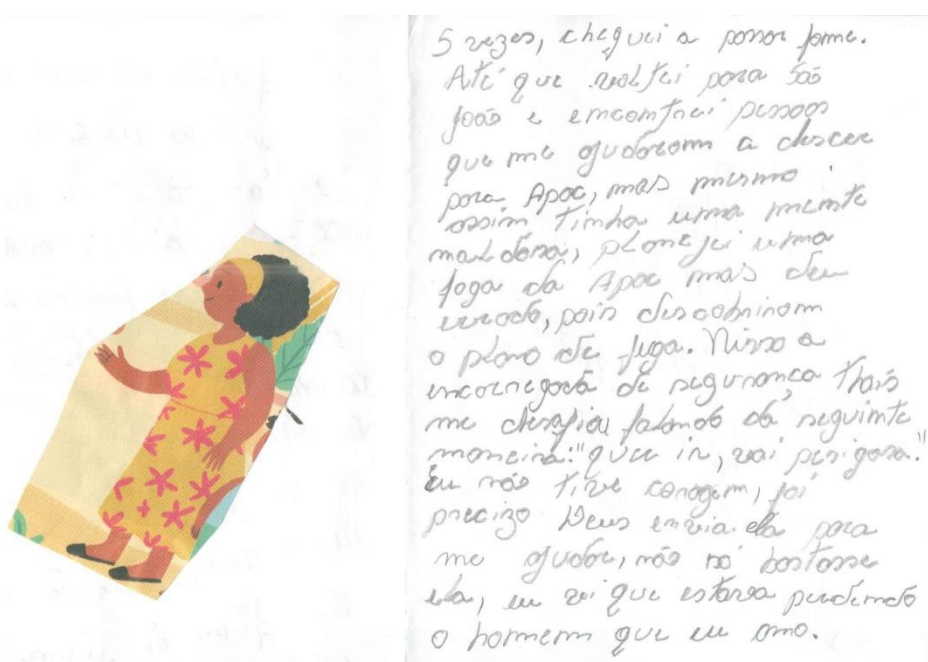 5 vezes, cheguei a passar fome.
Até que voltei para São
João e encontrei pessoas
que me ajudaram a descer
para Apac, mas mesmo
assim tinha uma mente
maldosa, planejei uma
foga da Apac mas deu
errado, pois descobriram
o plano de fuga. Nisso a
encarregada de segurança, Thaís
me desafiou falando da seguinte
maneira: "quer ir, vai perigosa."
Eu não tive coragem, foi
precizo Deus envia ela para
me ajudar, não só bastasse
ela, eu vi que estava perdendo
o homem que eu amo.